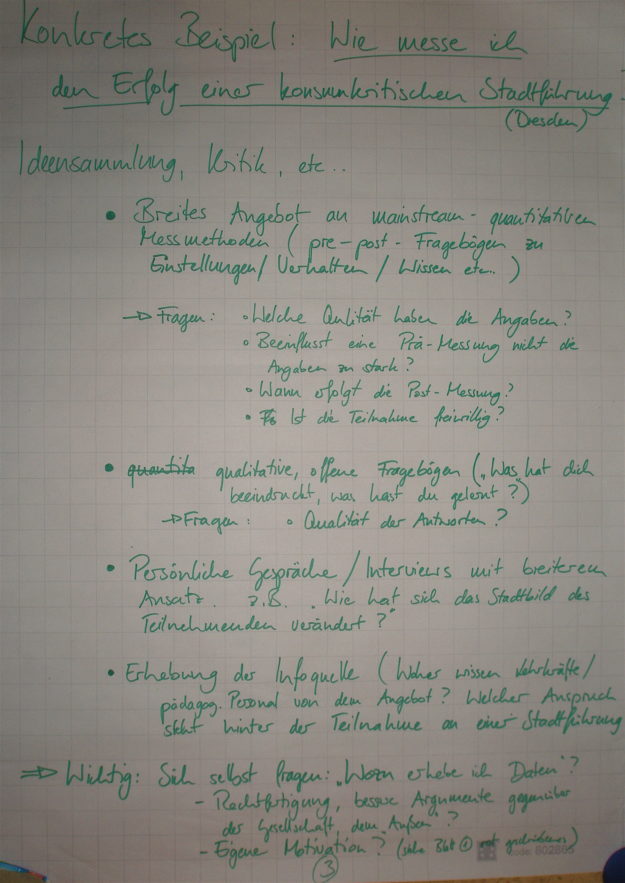 Konkretes Beispiel: Wie messe ich
den Erfolg einer konsumkritischen Stadtführung
(Dresden)
Ideensammlung, Kritik, etc..
• Breites Angebot an mainstream-quantitativen
Messmethoden (pre-post-Fragebögen zu
Einstellungen/Verhalten/Wissen etc..)
→ Fragen: • Welche Qulität haben die Angaben?
• Beeinflusst eine Prä-Messung nicht die
Angaben zu stark?
• Wann erfolgt die Post-Messung?
• Ist die Teilnahme freiwillig?
• quantita qualitative, offene Fragebögen („Was hat dich
beeindruckt, was hast du gelernt?)
→ Fragen: • Qualität der Antworten?
• Persönliche Gespräche/Interviews mit breiterem
Ansatz. z.B. „Wie hat sich das Stadtbild des
Teilnehmenden verändert?"
• Erhebung der Infoquelle (Woher wissen Lehrkräfte/
pädagog. Personal von dem Angebot? Welcher Anspruch
steht hinter der Teilnahme an einer Stadtführung
⇒ Wichtig: Sich selbst fragen: „Wozu erhebe ich Daten"?
- Rechtfertigung, bessere Argumente gegenüber
der Gesellschaft, dem „Außen"?
- Eigene Motivation? (siehe Blatt ① rot geschrieben)
code: 802865
3